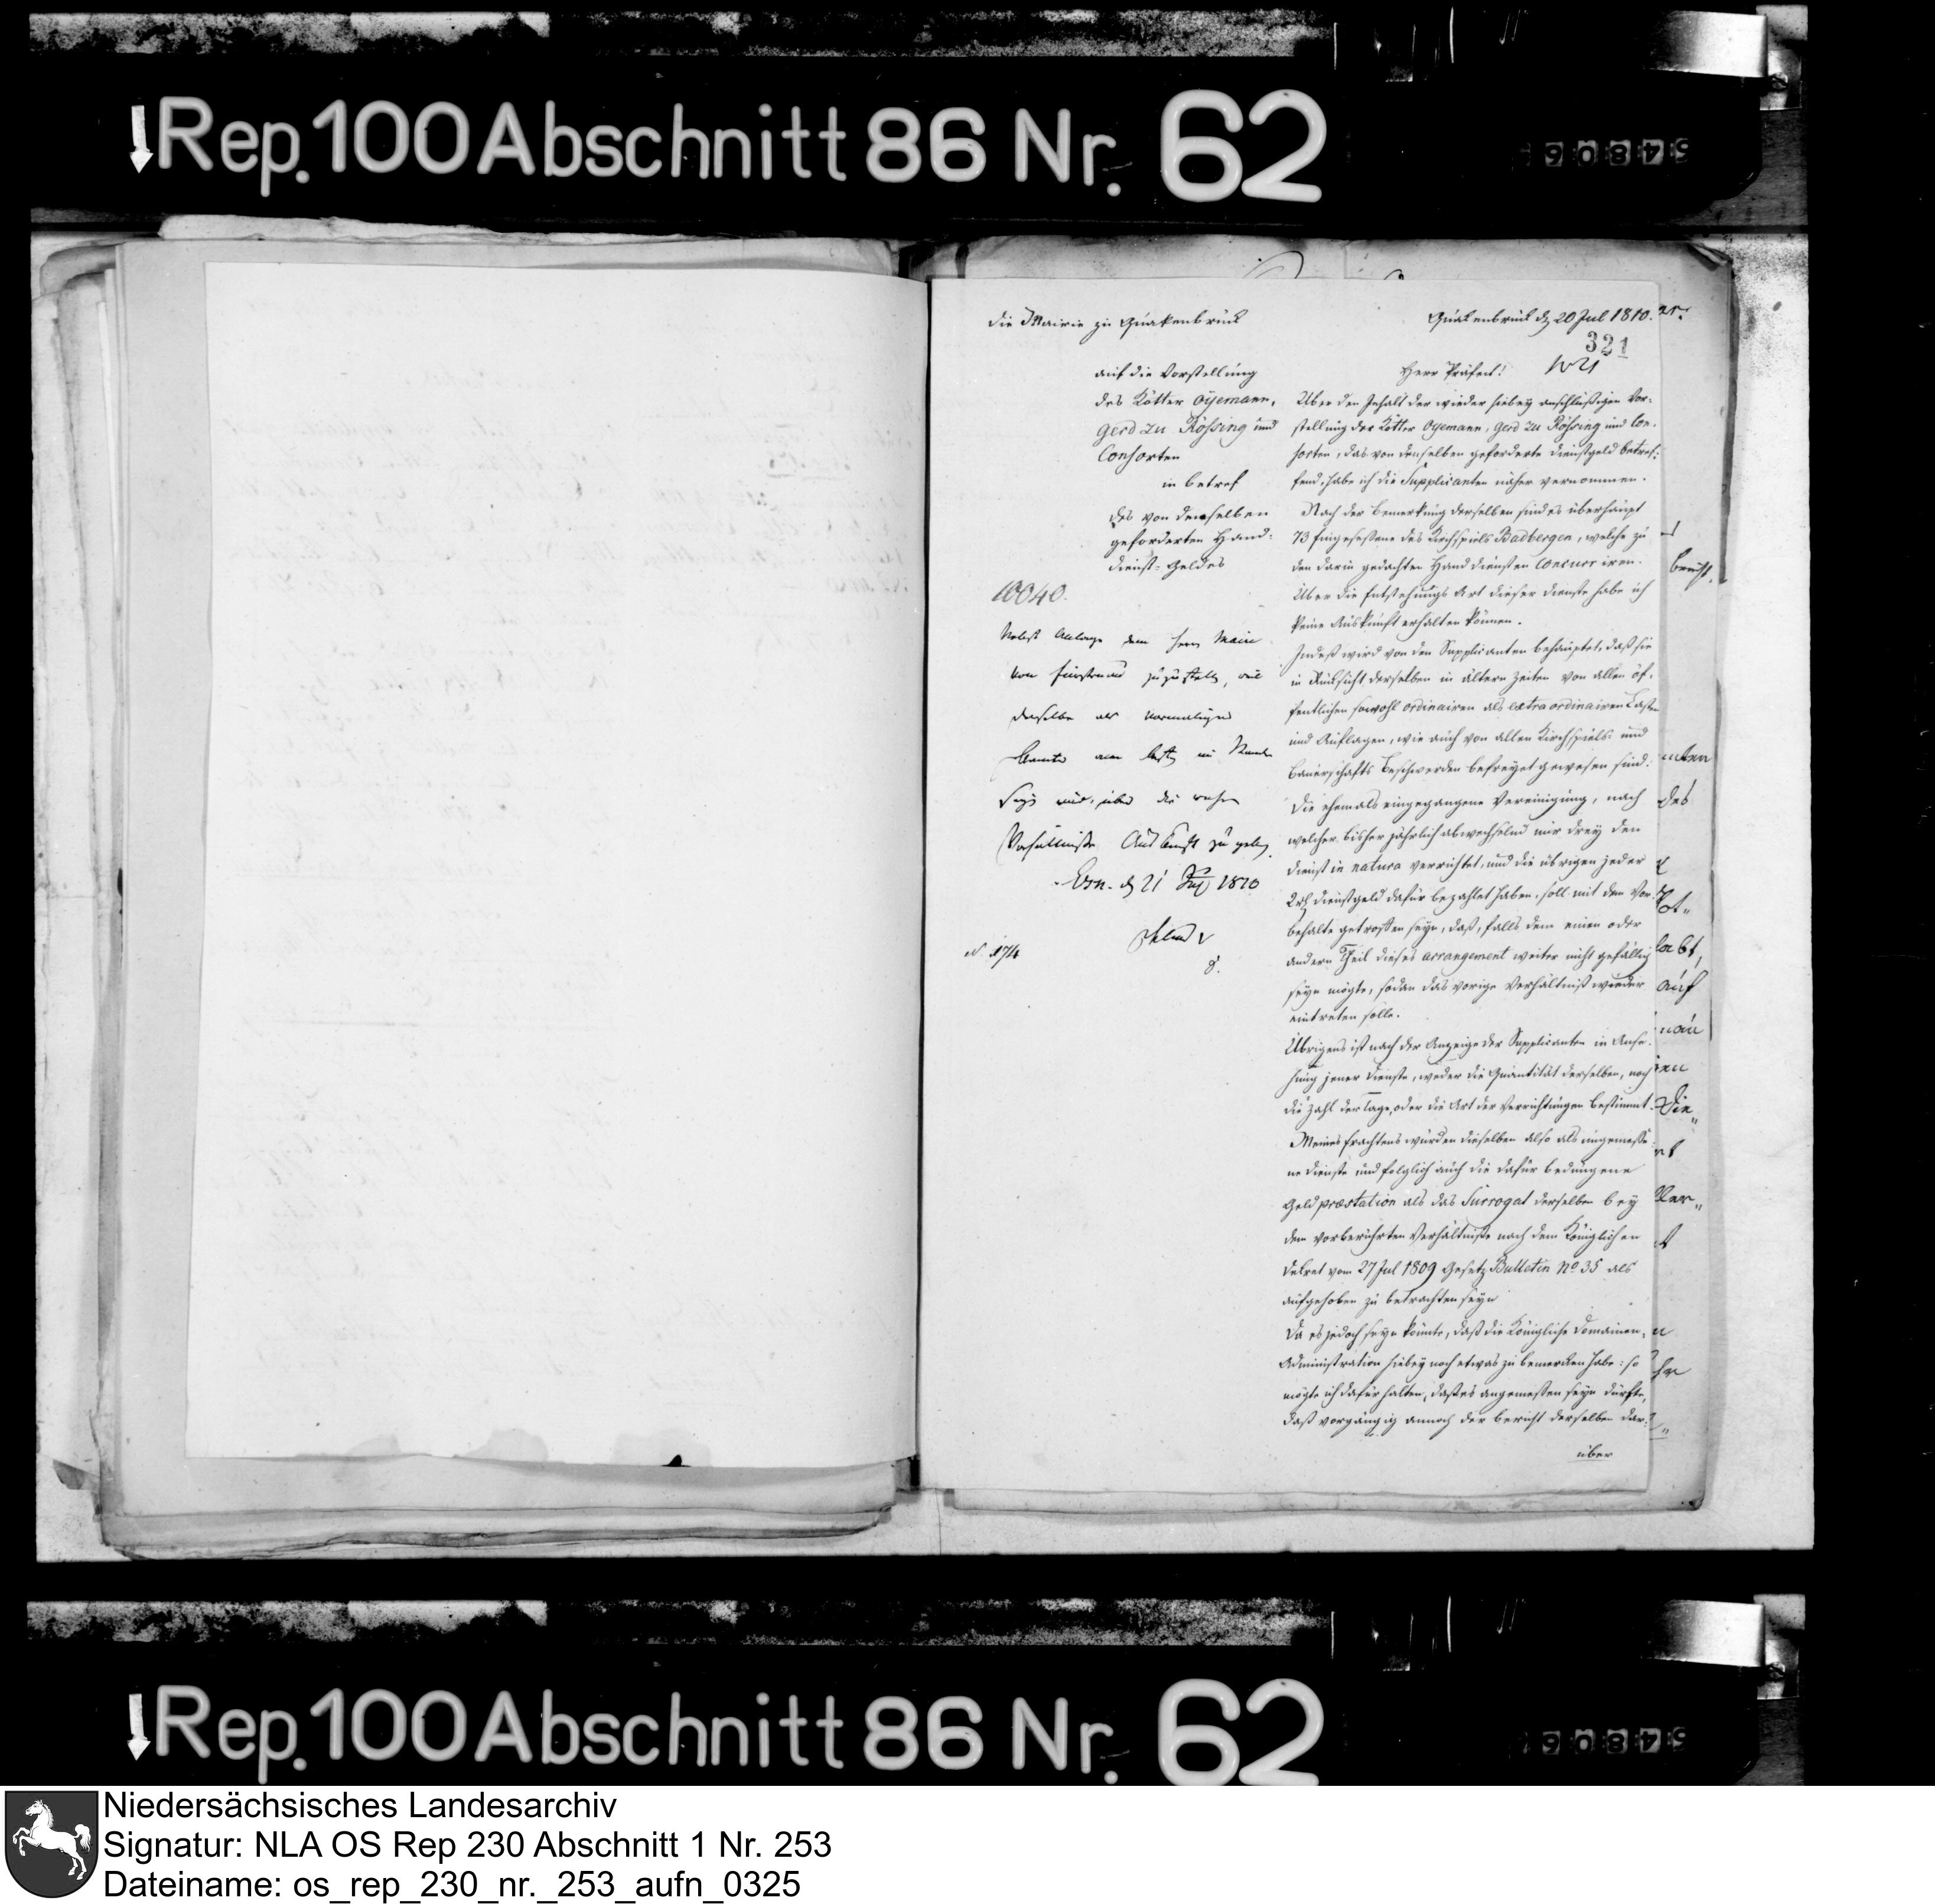 Rep. 100 Abschnitt 86 Nr. 62
54806
die Mairie zu Quakenbrück
Quakenbrück d. 20 Jul 1810.
321
auf die Vorstellung
des Kötter Oyemann,
Gerd zu Rößing und
Consorten
in betref
des von denselben
geforderten Hand-
dienst-Geldes
10040.
Nebst Anlage dem Herrn Maire
von zuzustellen, weil
derselbe als vormaliger
Beamter am besten im Stande
seyn wird, über die wahren
Verhältniße Auskunft zu geben.
Osn. d 21 1810
N. 174
Herr Präfect!
Über den Inhalt der wieder hiebey anschlüßigen Vor-
stellung der Kötter Oyemann, Gerd zu Rößing und Con-
sorten, das von denselben geforderte Dienstgeld betref-
fend, habe ich die Supplicanten näher vernommen.
Nach der Bemerkung derselben sind es überhaupt
73 Eingeseßene des Kirchspiels Badbergen, welche zu
den darin gedachten Hand diensten concurriren.
Über die Entstehungs Art dieser Dienste habe ich
keine Auskunft erhalten können.
Indeß wird von den Supplicanten behauptet, daß sie
in Rücksicht derselben in ältern Zeiten von allen öf-
fentlichen sowohl ordinairen als extraordinairen Lasten
und Auflagen, wie auch von allen Kirchspiels- und
Bauerschafts Beschwerden befreyet gewesen sind.
Die ehemals eingegangene Vereinigung, nach
welcher bisher jährlich abwechselnd nur drey den
Dienst in natura verrichtet, und die übrigen jeder
2 rth Dienstgeld dafür bezahlet haben, soll mit dem Vor-
behalte getroffen seyn, daß, falls dem einen oder
andern Theil dieses arrangement weiter nicht gefällig
seyn mögte, sodan das vorige Verhältniß wieder
eintreten solle.
Übrigens ist nach der Anzeige der Supplicanten in Anse-
hung jener Dienste, weder die Quantität derselben, noch
die Zahl der Tage, oder die Art der Verrichtungen bestimmt.
Meines Erachtens würden dieselben also als ungemeße-
ne Dienste und folglich auch die dafür bedungene
Geld præstation als das Surrogat derselben bey
dem vorberührten Verhältniße nach dem Königlichen
Dekret vom 27 Jul 1809 Gesetz Bulletin No 35 als
aufgehoben zu betrachten seyn
Da es jedoch seyn könnte, daß die Königliche Domainen-
Administration hiebey noch etwas zu bemerken habe: so
mögte ich dafür halten, daß es angemeßen seyn dürfte,
daß vorgängig annoch der Bericht derselben dar-
über
Bericht.
des
auf
Rep. 100 Abschnitt 86 Nr. 62
54806
Niedersächsisches Landesarchiv
Signatur: NLA OS Rep 230 Abschnitt 1 Nr. 253
Dateiname: os_rep_230_nr._253_aufn_0325